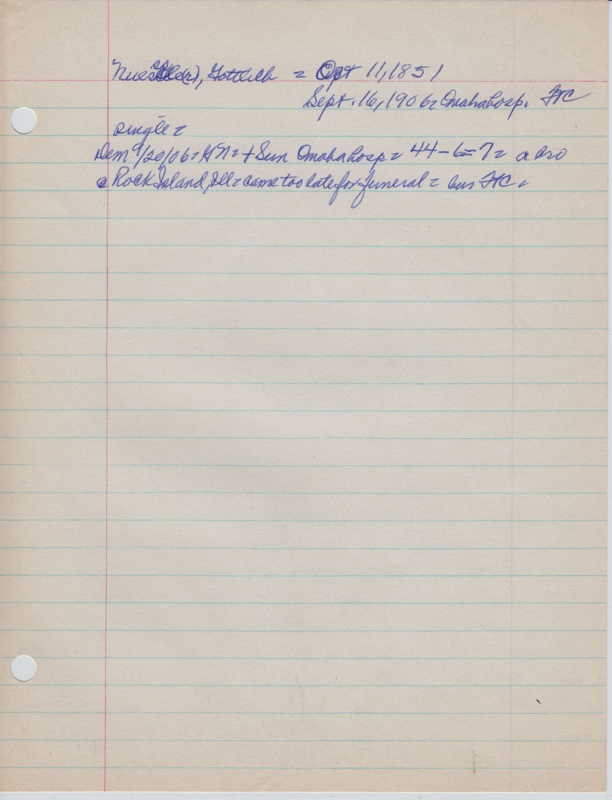 Gottlieb = Oct 11, 1851
Sept. 16, 1906 = Omaha hosp. FtC
single =
Dem 9/20/06 = = + Sun Omaha hosp = 44-6-7 = a bro
@ Rock Island, Ill = came too late for funeral = bur FtC =